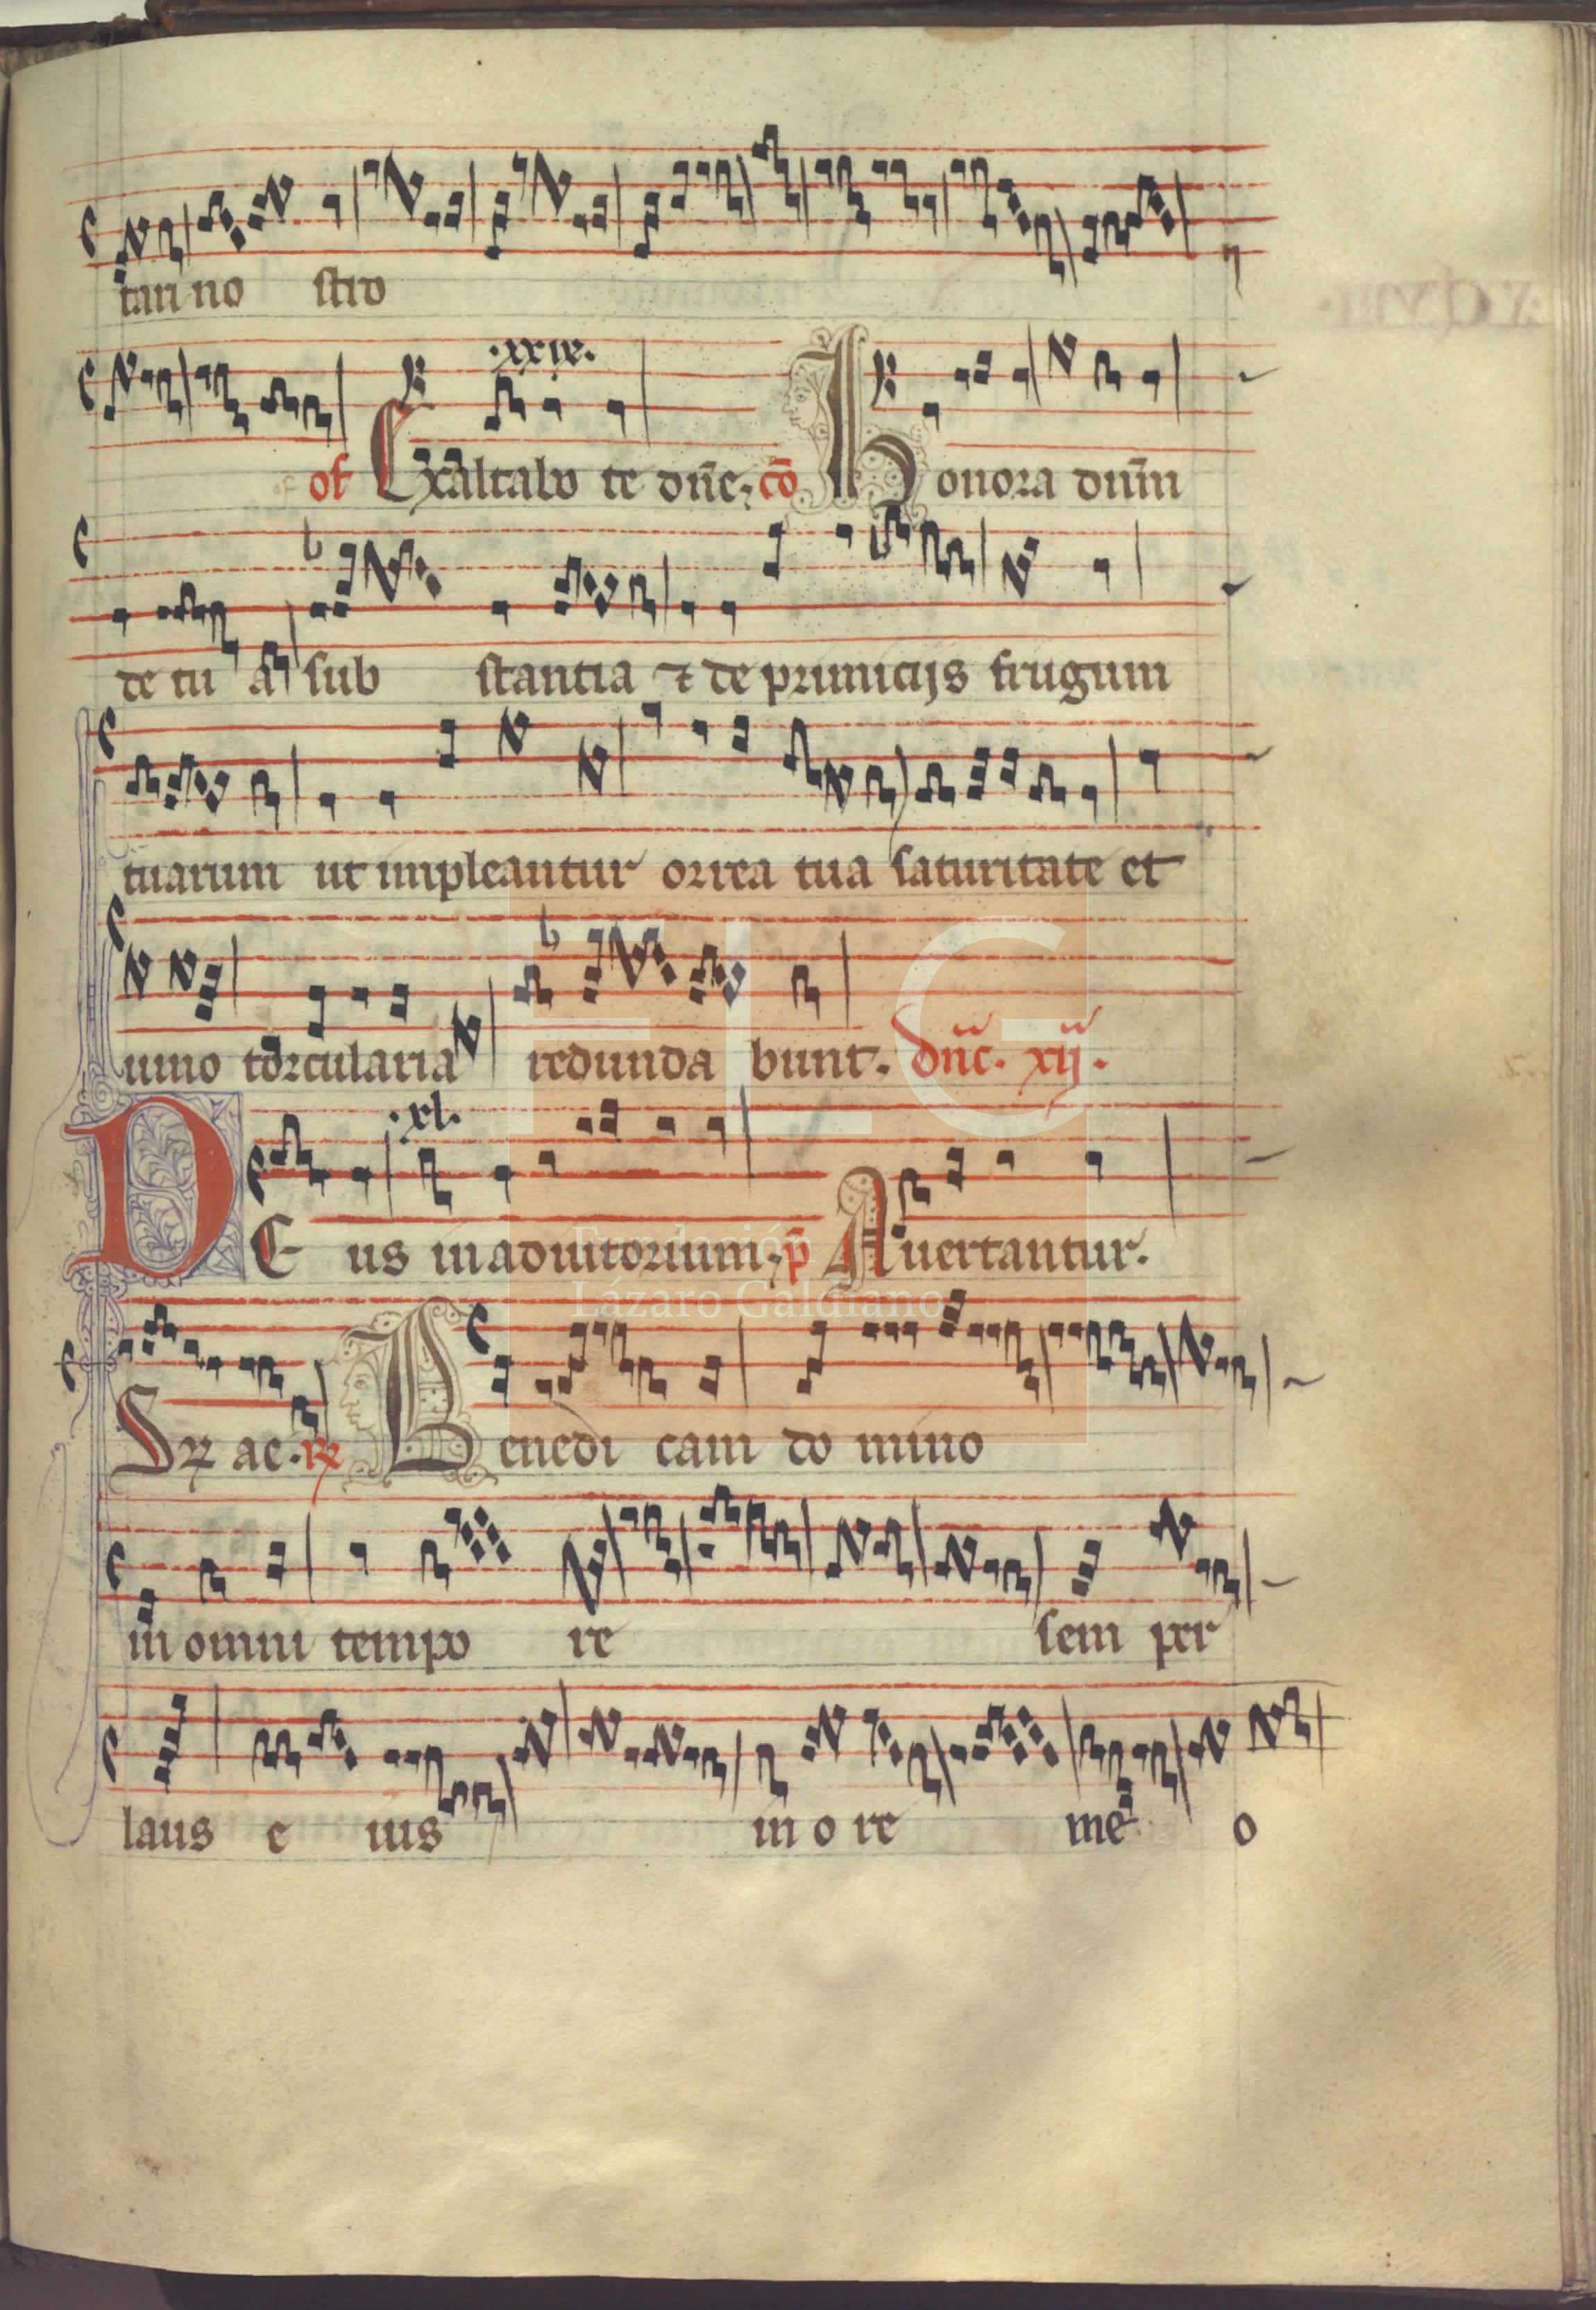 tari no stro
.xxix.
of Exaltabo te dñe. cō Honora dnm̄
de tu a sub stantia ⁊ de primicijs frugum
tuarum ut impleantur orrea tua saturitate et
uino torcularia redunda bunt. dñc. xij.
.xl.
DE us in adiutorium. p̄ Auertantur.
ae. Benedi cam do mino
in omni tempo re sem per
laus e ius in o re me o
FLG
Fundación
Lázaro Galdiano